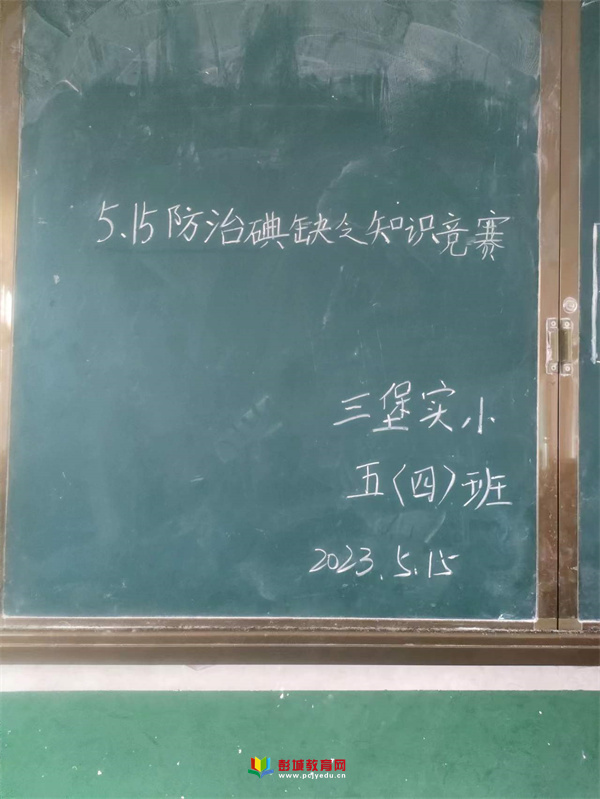 5.15防治碘缺乏知识竞赛
三堡实小
五(四)班
2023.5.15
彭城教育网
www.pcjyedu.cn